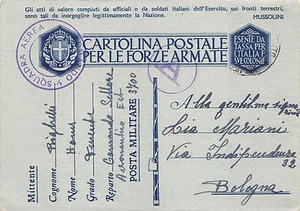 Gli atti di valore compiuti da ufficiali e da soldati italiani dell'Esercito, sui fronti terrestri,
sono tali da inorgoglire legittimamente la Nazione. MUSSOLINI
CARTOLINA POSTALE
PER LE FORZE ARMATE
ESENTE DA
TASSA PER
L'ITALIA
E SVE COLONIE
3ª SQUADRA AEREA
Mittente
Cognome
Nome
Grado
Reparto Comando
POSTA MILITARE 3700
Alla gentilma
Lia Mariani
Via Indipendenza
32
Bologna